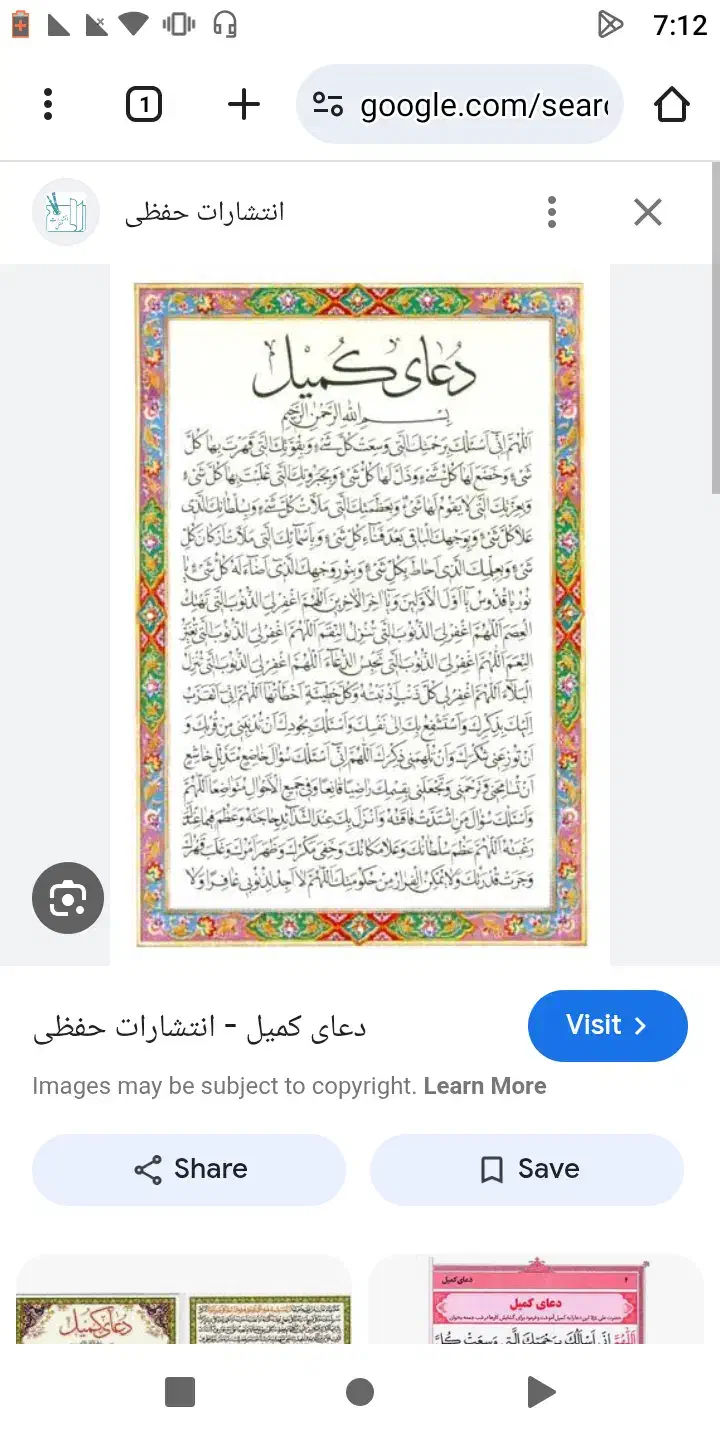 7:12
1
google.com/sear
انتشارات حفظی
دُعای کُمیل
بِسْمِ اللهِ الرَّحْمٰنِ الرَّحِیْمِ
اَللّٰهُمَّ اِنّی اَسْئَلُكَ بِرَحْمَتِكَ الَّتی وَسِعَتْ كُلَّ شَیْءٍ وَبِقُوَّتِكَ الَّتی قَهَرْتَ بِها كُلَّ
شَیْءٍ وَخَضَعَ لَها كُلُّ شَیْءٍ وَذَلَّ لَها كُلُّ شَیْءٍ وَبِجَبَرُوتِكَ الَّتی غَلَبْتَ بِها كُلَّ شَیْءٍ
وَبِعِزَّتِكَ الَّتی لا یَقُومُ لَها شَیْءٌ وَبِعَظَمَتِكَ الَّتی مَلَأَتْ كُلَّ شَیْءٍ وَبِسُلْطانِكَ الَّذی
عَلا كُلَّ شَیْءٍ وَبِوَجْهِكَ الْباقی بَعْدَ فَنآءِ كُلِّ شَیْءٍ وَبِاَسْمآئِكَ الَّتی مَلَأَتْ اَرْكانَ كُلِّ
شَیْءٍ وَبِعِلْمِكَ الَّذی اَحاطَ بِكُلِّ شَیْءٍ وَبِنُورِ وَجْهِكَ الَّذی اَضآءَ لَهُ كُلُّ شَیْءٍ یا
نُورُ یا قُدُّوسُ یا اَوَّلَ الْاَوَّلینَ وَیا اخِرَ الْاخِرینَ اَللّٰهُمَّ اغْفِرْ لِیَ الذُّنُوبَ الَّتی تَهْتِكُ
الْعِصَمَ اَللّٰهُمَّ اغْفِرْ لِیَ الذُّنُوبَ الَّتی تُنْزِلُ النِّقَمَ اَللّٰهُمَّ اغْفِرْ لِیَ الذُّنُوبَ الَّتی تُغَیِّرُ
النِّعَمَ اَللّٰهُمَّ اغْفِرْ لِیَ الذُّنُوبَ الَّتی تَحْبِسُ الدُّعآءَ اَللّٰهُمَّ اغْفِرْ لِیَ الذُّنُوبَ الَّتی تُنْزِلُ
الْبَلآءَ اَللّٰهُمَّ اغْفِرْ لی كُلَّ ذَنْبٍ اَذْنَبْتُهُ وَكُلَّ خَطیئَةٍ اَخْطَأْتُها اَللّٰهُمَّ اِنّی اَتَقَرَّبُ
اِلَیْكَ بِذِكْرِكَ وَاَسْتَشْفِعُ بِكَ اِلی نَفْسِكَ وَاَسْئَلُكَ بِجُودِكَ اَنْ تُدْنِیَنی مِنْ قُرْبِكَ وَ
اَنْ تُوزِعَنی شُكْرَكَ وَاَنْ تُلْهِمَنی ذِكْرَكَ اَللّٰهُمَّ اِنّی اَسْئَلُكَ سُؤالَ خاضِعٍ مُتَذَلِّلٍ خاشِعٍ
اَنْ تُسامِحَنی وَتَرْحَمَنی وَتَجْعَلَنی بِقِسْمِكَ راضِیًا قانِعًا وَفی جَمیعِ الْاَحْوالِ مُتَواضِعًا اَللّٰهُمَّ
وَاَسْئَلُكَ سُؤالَ مَنِ اشْتَدَّتْ فاقَتُهُ وَاَنْزَلَ بِكَ عِنْدَ الشَّدآئِدِ حاجَتَهُ وَعَظُمَ فیما عِنْدَكَ
رَغْبَتُهُ اَللّٰهُمَّ عَظُمَ سُلْطانُكَ وَعَلا مَكانُكَ وَخَفِیَ مَكْرُكَ وَظَهَرَ اَمْرُكَ وَغَلَبَ قَهْرُكَ
وَجَرَتْ قُدْرَتُكَ وَلا یُمْكِنُ الْفِرارُ مِنْ حُكُومَتِكَ اَللّٰهُمَّ لا اَجِدُ لِذُنُوبی غافِرًا وَلا
دعای کمیل - انتشارات حفظی
Visit
Images may be subject to copyright. Learn More
Share
Save
دعای کمیل
دعای کمیل
دعای کمیل